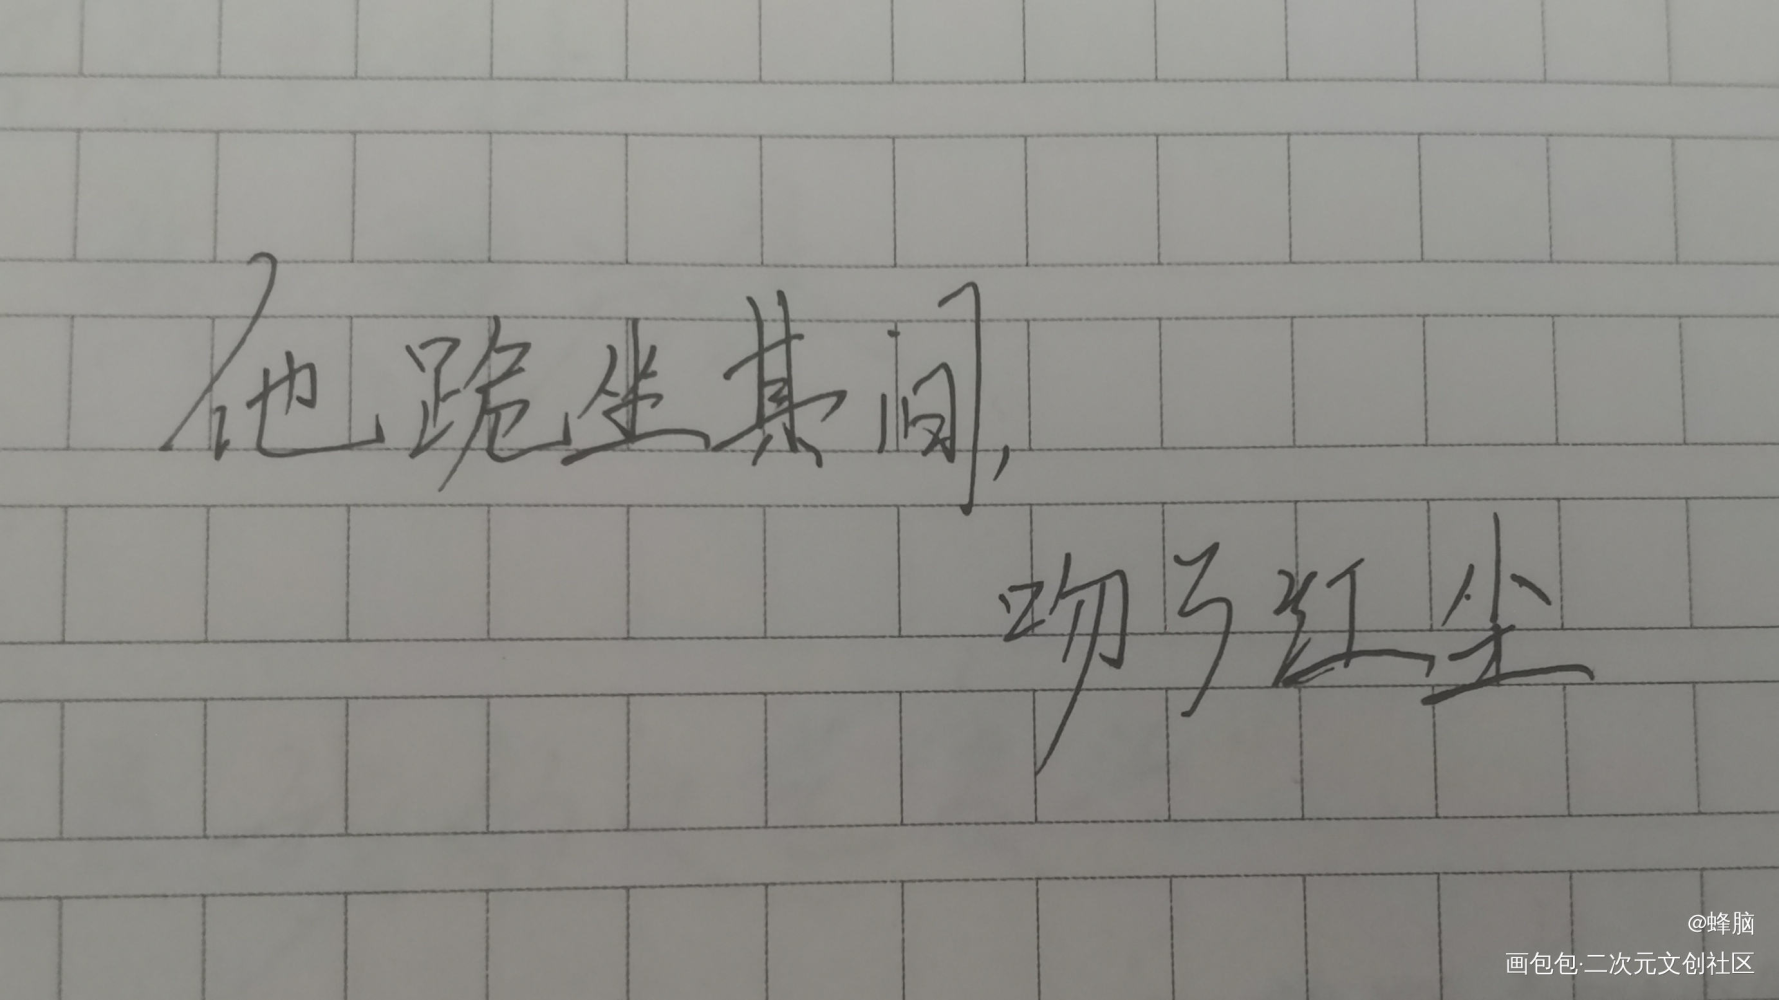 他跪坐其间,
吻了红尘
@蜂脑
画包包·二次元文创社区